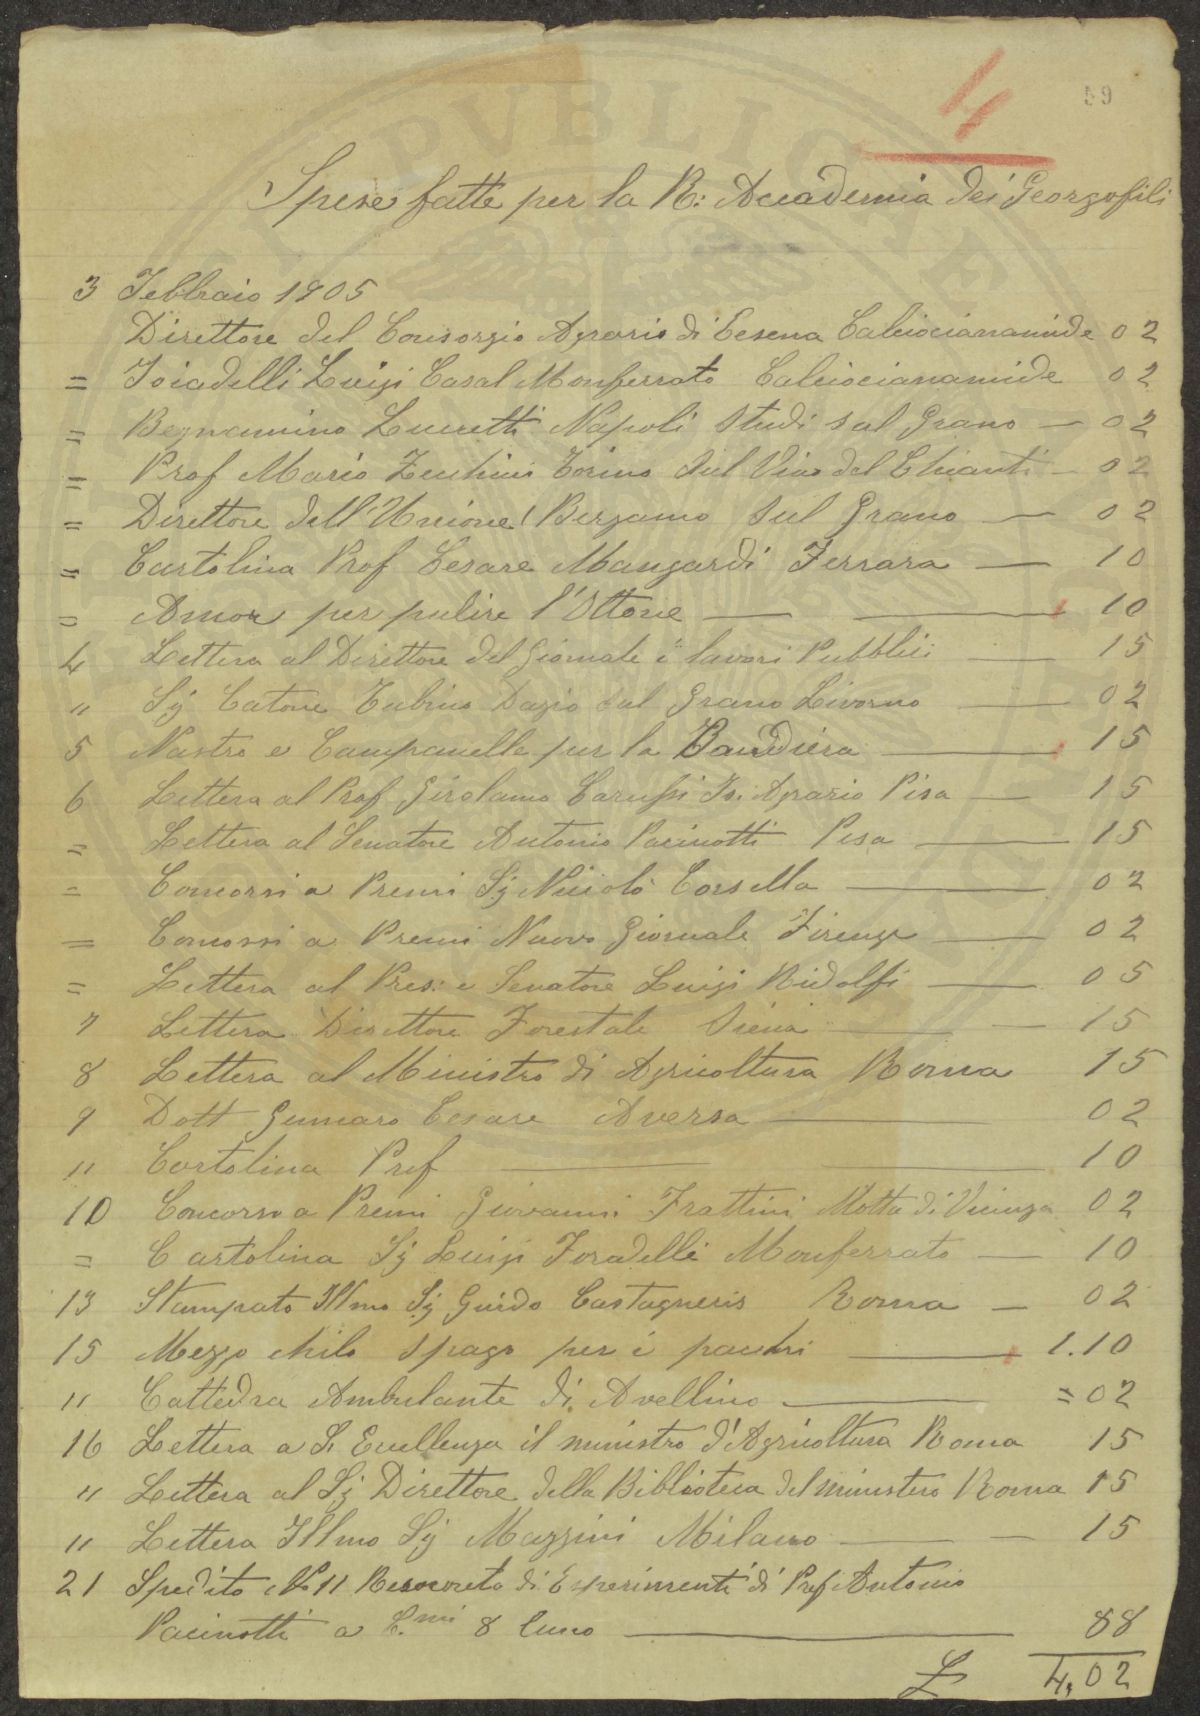 59
4
Spese fatte per la R: Accademia dei Georgofili
3 Febbraio 1905
Direttore del Consorzio Agrario di Cesena Calciocianamide 02
= Luigi Casal Monferrato Calciocianamide 02
= Begnamino Lucretti Napoli Studi sul Grano — 02
= Prof Mario Zecchini Torino Sul Vino del Chianti — 02
= Direttore dell'Unione Bergamo Sul Grano — 02
= Cartolina Prof Cesare Mangardi Ferrara — 10
= Amor per pulire l'Ottone — 10
4 Lettera al Direttore del Giornale i lavori Pubblici — 15
" Sg Catone Dazio sul Grano Livorno — 02
5 Nastro e Campanella per la Bandiera — 15
6 Lettera al Prof Girolamo Agrario Pisa — 15
= Lettera al Senatore Antonio Pacinotti Pisa — 15
= Concorsi a Premi Sg Niccolò Corsella — 02
= Concorsi a Premi Nuovo Giornale Firenze — 02
= Lettera al Pres: e Senatore Luigi Ridolfi — 05
7 Lettera Direttore Forestale Siena — 15
8 Lettera al Ministro di Agricoltura Roma 15
9 Dott Gennaro Cesare Aversa — 02
" Cartolina Prof — 10
10 Concorso a Premi Giovanni Frattini Motta di Vicenza 02
= Cartolina Sg Luigi Foradelli Monferrato — 10
13 Stampato Illmo Sg Guido Castagneris Roma — 02
15 Mezzo chilo spago per i pacchi — 1.10
" Cattedra Ambulante di Avellino — = 02
16 Lettera a S. Eccellenza il ministro d'Agricoltura Roma 15
" Lettera al Sg Direttore della Biblioteca del ministero Roma 15
" Lettera Illmo Sg Mazzini Milano — 15
21 Spedito No 11 di Esperimenti di Prof Antonio
Pacinotti a C.mi 8 l'uno — 88
L 4,02